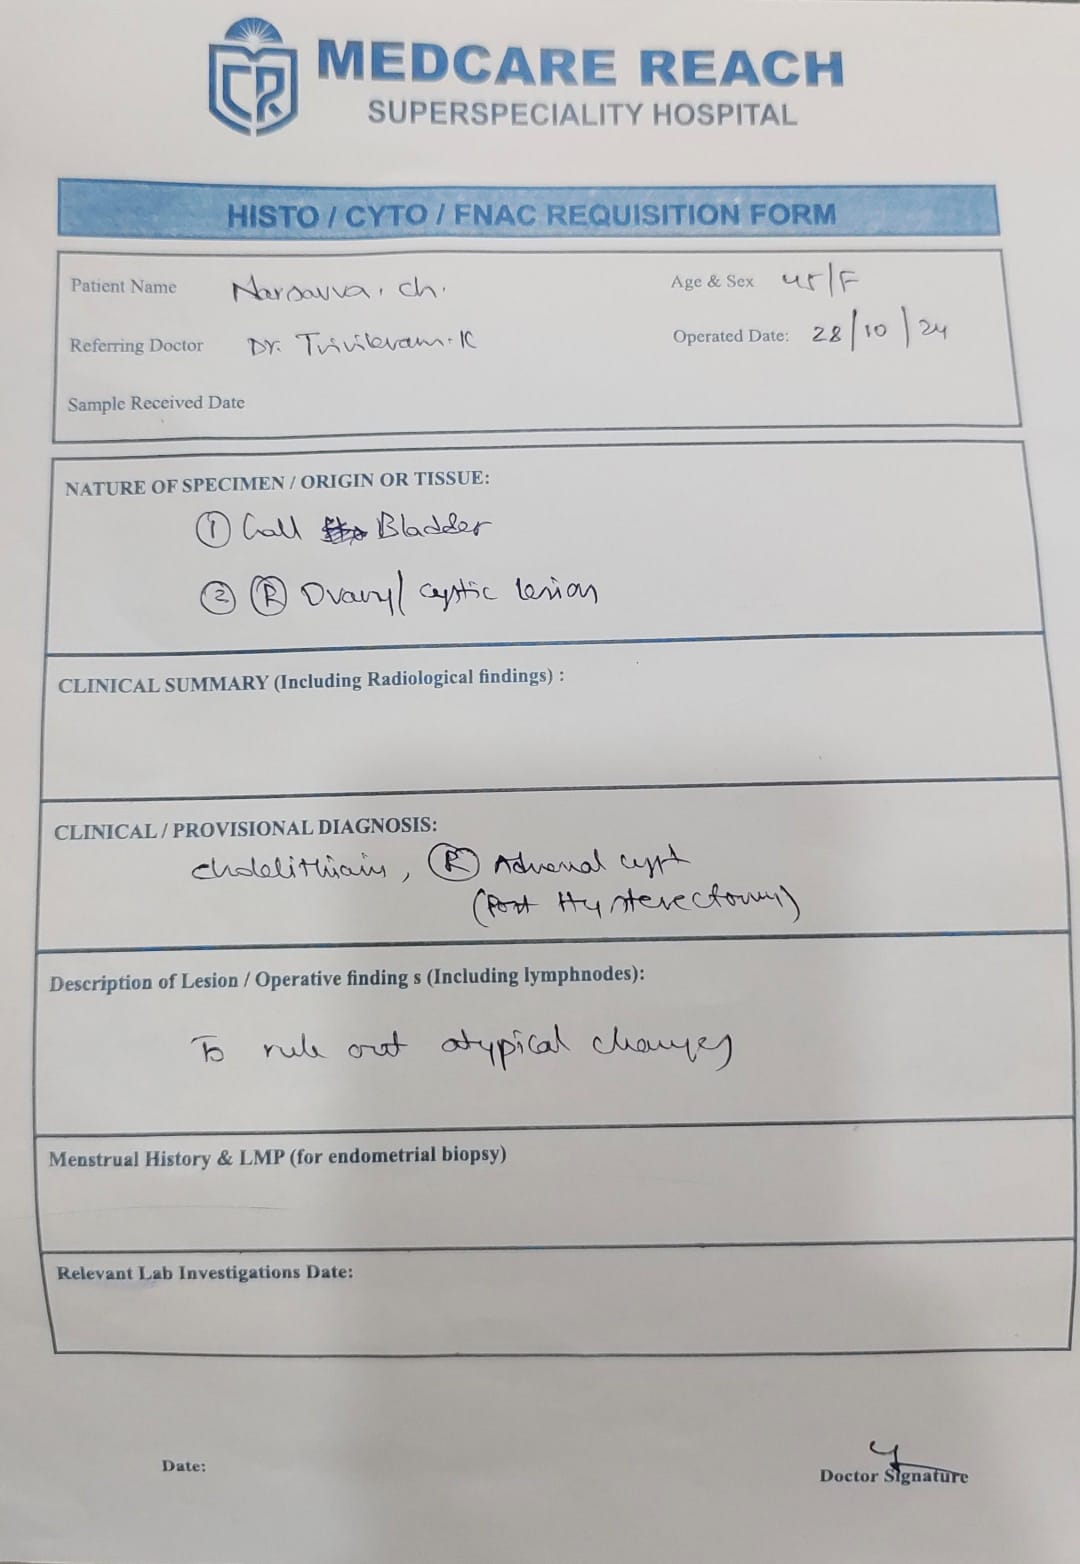 MEDCARE REACH
SUPERSPECIALITY HOSPITAL
HISTO / CYTO / FNAC REQUISITION FORM
Patient Name Narsavva. ch.
Age & Sex 45/F
Referring Doctor Dr. Trivikram. K
Operated Date: 28/10/24
Sample Received Date
NATURE OF SPECIMEN / ORIGIN OR TISSUE:
① Gall Bladder
② Ⓡ Ovary/ cystic lesion
CLINICAL SUMMARY (Including Radiological findings) :
CLINICAL / PROVISIONAL DIAGNOSIS:
cholelithiasis, Ⓡ Adrenal cyst
(Post Hysterectomy)
Description of Lesion / Operative finding s (Including lymphnodes):
To rule out atypical changes
Menstrual History & LMP (for endometrial biopsy)
Relevant Lab Investigations Date:
Date:
Doctor Signature